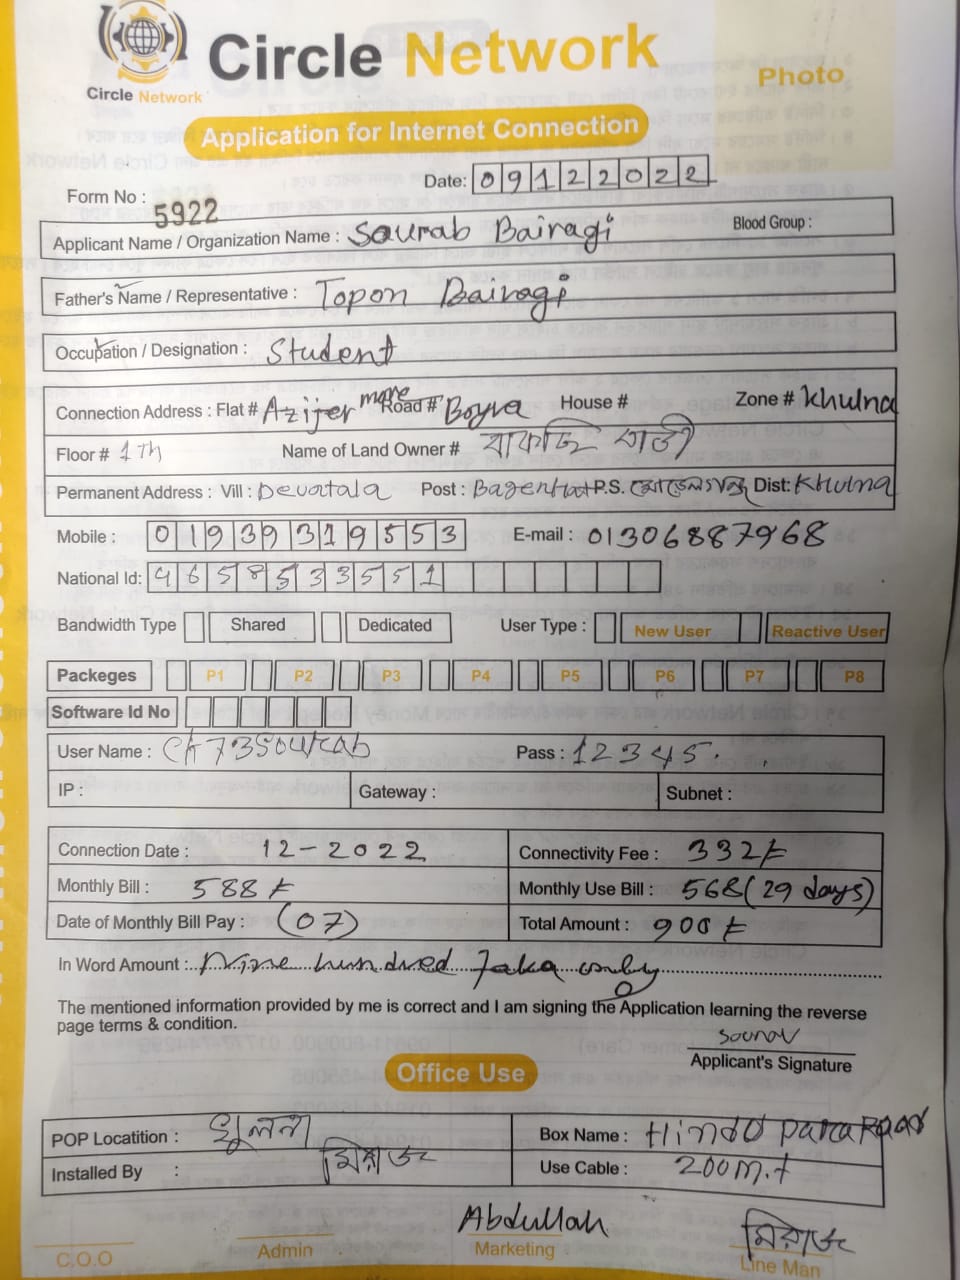 Circle Network
Circle Network
Photo
Application for Internet Connection
Date: 09122022
Form No : 5922
Applicant Name / Organization Name : Sourab Bairagi Blood Group :
Father's Name / Representative : Topon Bairagi
Occupation / Designation : Student
Connection Address : Flat # Azijer more Road # Boyra House # Zone # Khulna
Floor # 1Th Name of Land Owner #
Permanent Address : Vill : Devatala Post : Bagerhat P.S. Dist: Khulna
Mobile : 01939319553 E-mail : 01306887968
National Id: 4658533551
Bandwidth Type Shared Dedicated User Type : New User Reactive User
Packeges P1 P2 P3 P4 P5 P6 P7 P8
Software Id No
User Name : Pass : 12345
IP : Gateway : Subnet :
Connection Date : 12-2022 Connectivity Fee : 332৳
Monthly Bill : 588৳ Monthly Use Bill : 568(29 days)
Date of Monthly Bill Pay : (07) Total Amount : 900৳
In Word Amount : Nine hundred Taka only
The mentioned information provided by me is correct and I am signing the Application learning the reverse
page terms & condition.
Sourav
Applicant's Signature
Office Use
POP Locatition : খুলনা Box Name : Hindu para Road
Installed By : মিরাজ Use Cable : 200m.t
Abdullah মিরাজ
C.O.O Admin Marketing Line Man